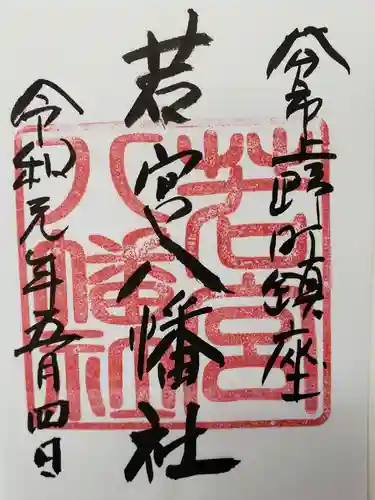 若宮八幡社
令和元年五月四日
若宮
八幡社